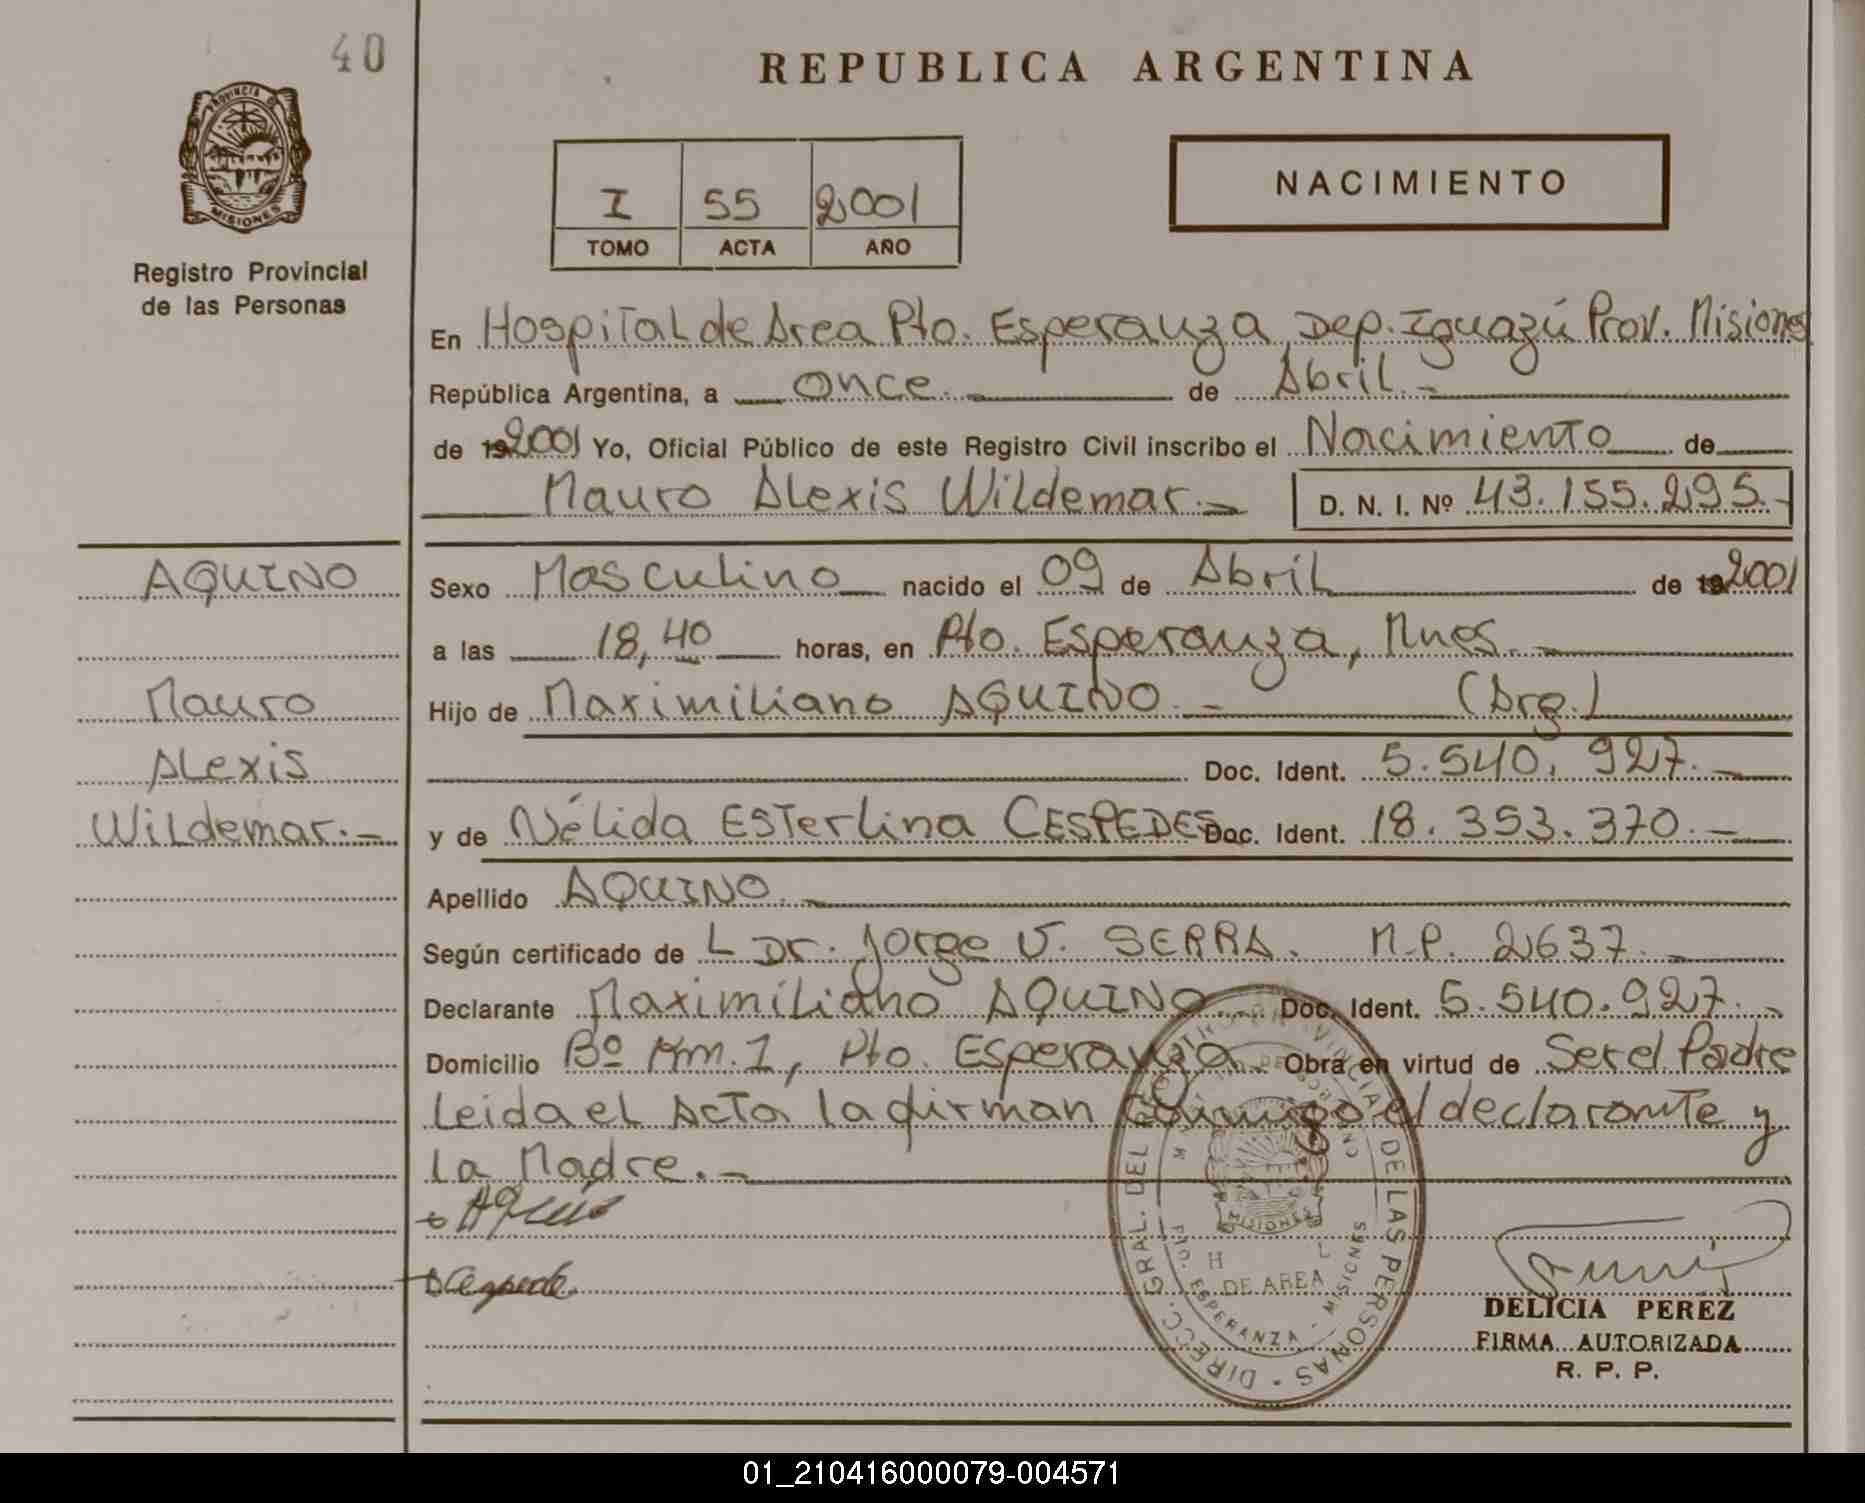 40
REPUBLICA ARGENTINA
PROVINCIA DE
MISIONES
Registro Provincial
de las Personas
I 55 2001
TOMO ACTA AÑO
NACIMIENTO
En Hospital de Area Pto. Esperanza, Dep. Iguazú Prov. Misiones
República Argentina, a once.- de Abril.-
de 192001 Yo, Oficial Público de este Registro Civil inscribo el Nacimiento de
Mauro Alexis Wildemar.- D. N. I. Nº 43.155.295.-
AQUINO
Mauro
Alexis
Wildemar.-
Sexo Masculino nacido el 09 de Abril de 192001
a las 18,40 horas, en Pto. Esperanza, Mnes.-
Hijo de Maximiliano AQUINO.- (Arg.)
Doc. Ident. 5.540.927.-
y de Nélida Esterlina CESPEDES Doc. Ident. 18.353.370.-
Apellido AQUINO.-
Según certificado de L Dr. Jorge V. SERRA. M.P. 2637.
Declarante Maximiliano AQUINO Doc. Ident. 5.540.927.-
Domicilio Bº Km. 1, Pto. Esperanza. Obra en virtud de Ser el Padre
Leida el Acta la firman conmigo el declarante y
la Madre.-
DIRECC. GRAL. DEL REGISTRO PROVINCIAL DE LAS PERSONAS
MISIONES
DE AREA
PTO. ESPERANZA - MISIONES
DELICIA PEREZ
FIRMA AUTORIZADA
R. P. P.
01_210416000079-004571